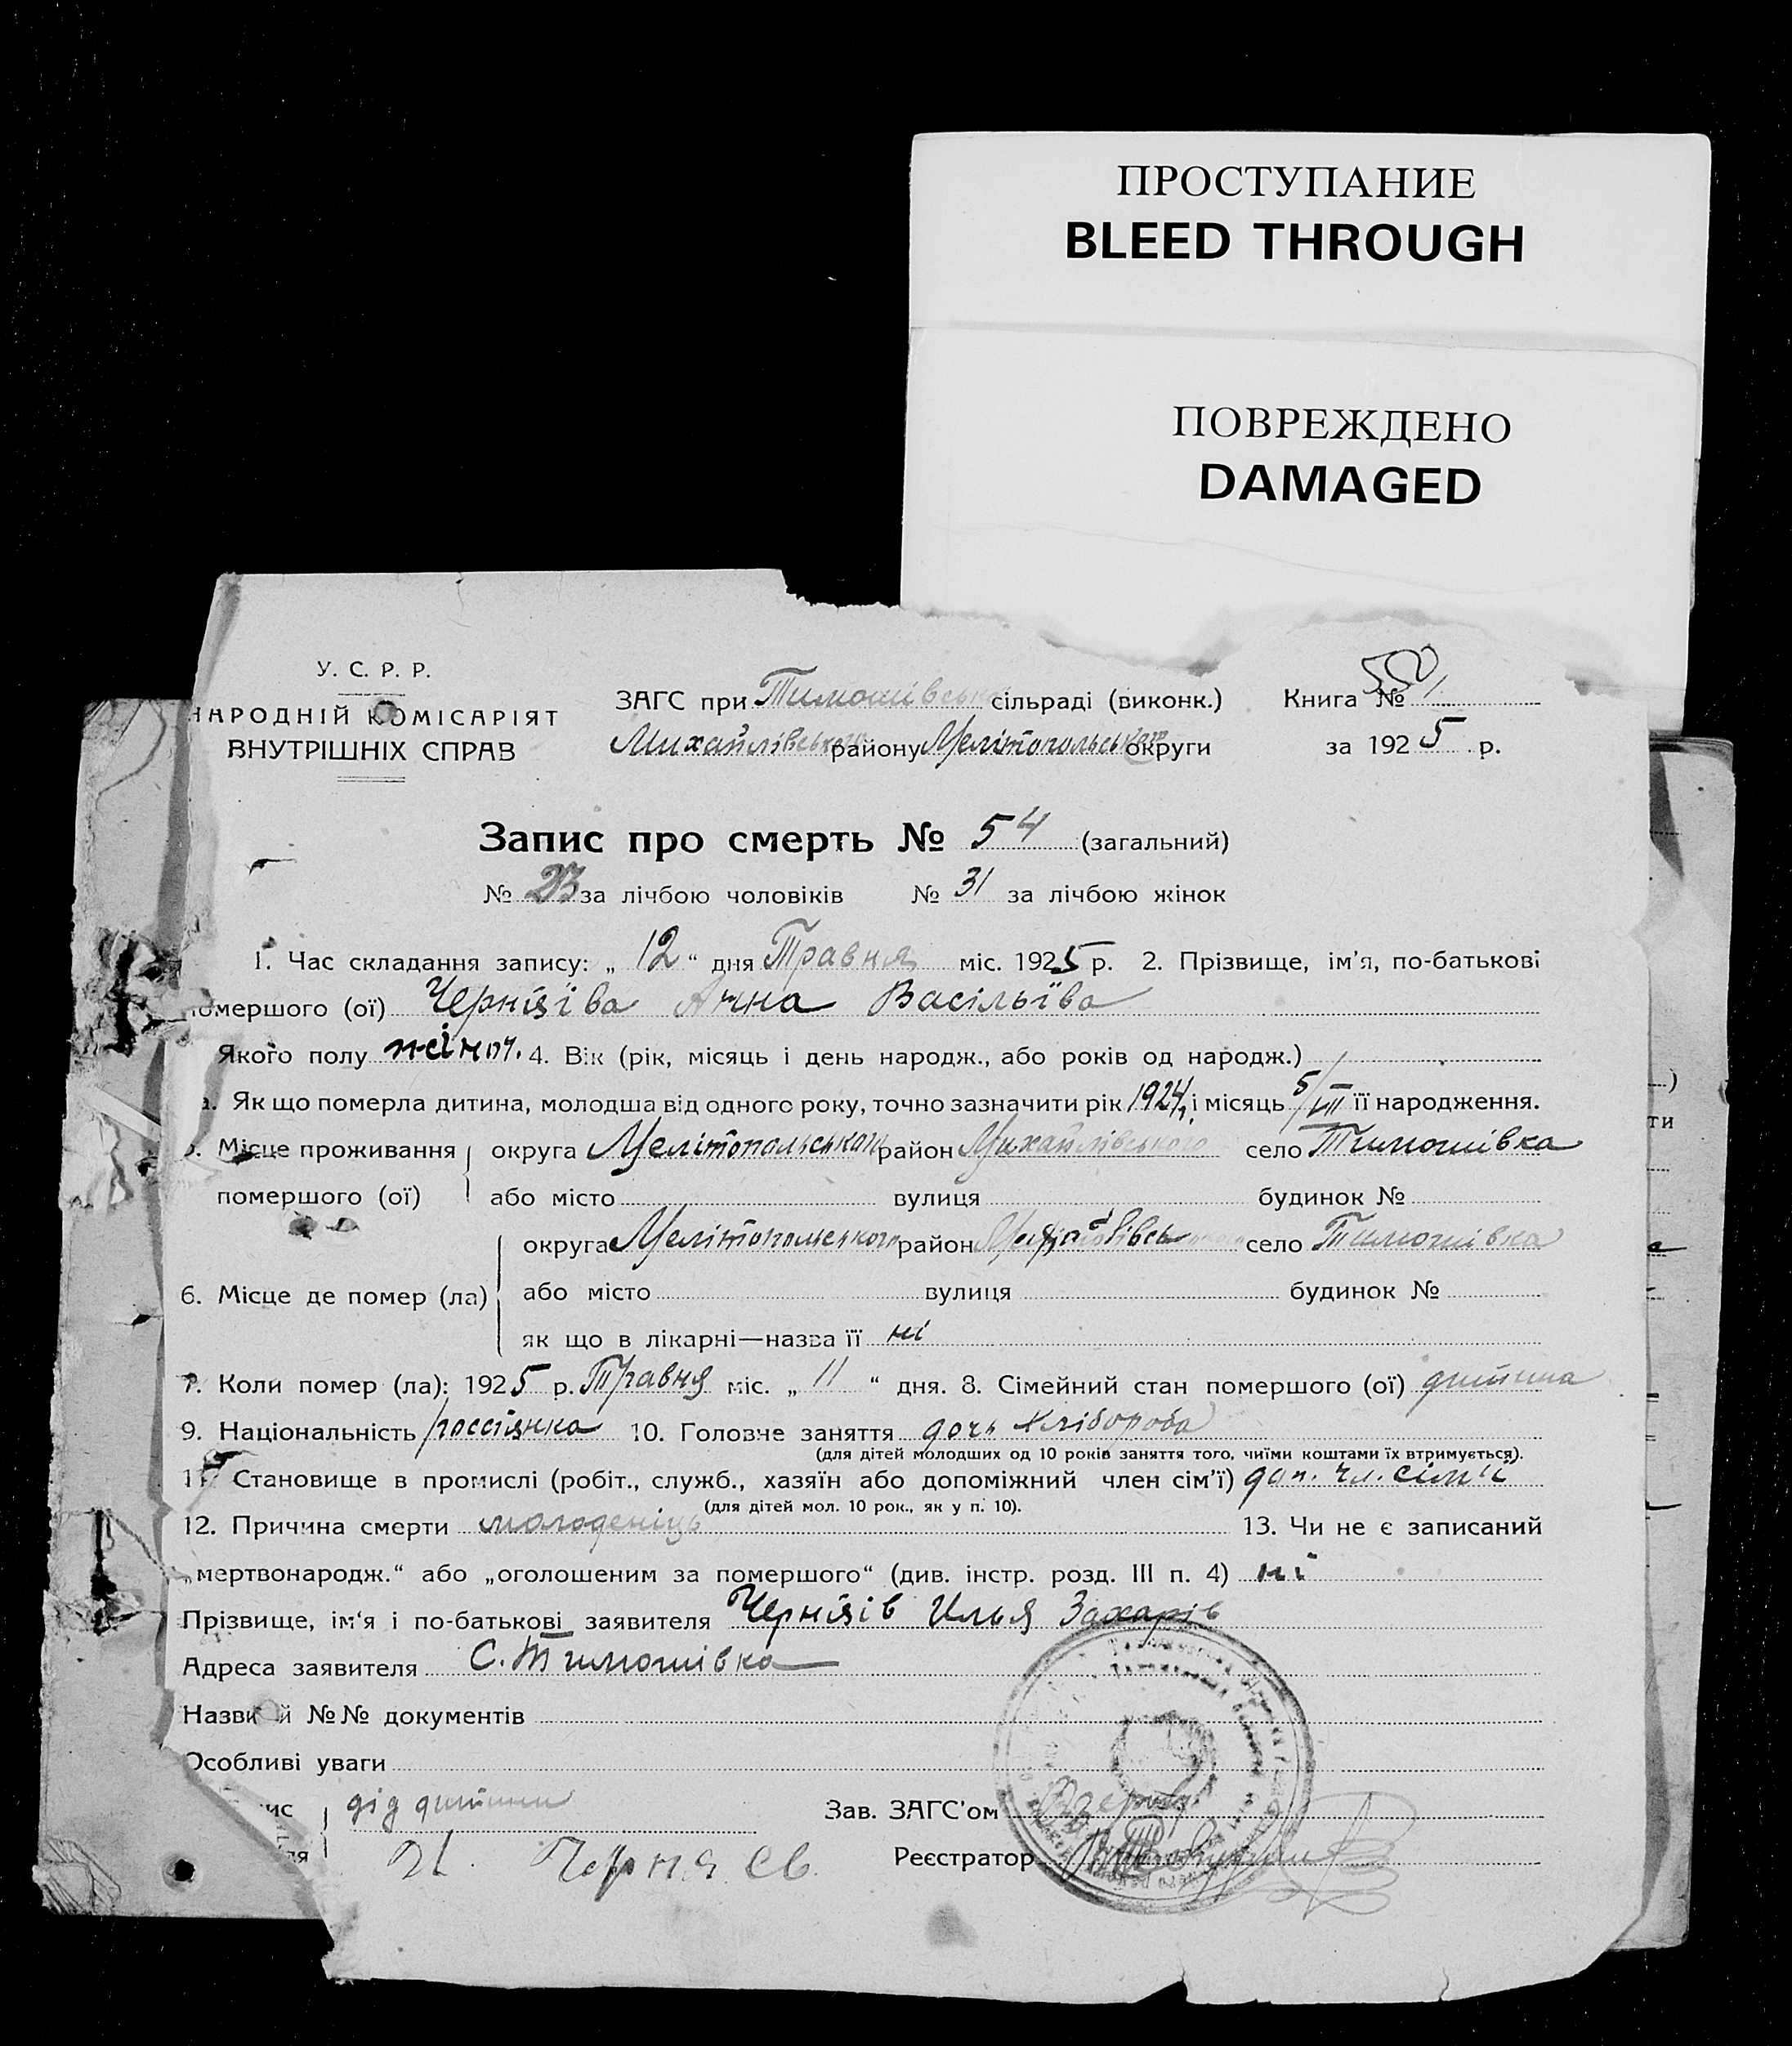 ПРОСТУПАНИЕ
BLEED THROUGH
ПОВРЕЖДЕНО
DAMAGED
У. С. Р. Р.
НАРОДНІЙ КОМІСАРІЯТ
ВНУТРІШНІХ СПРАВ
ЗАГС при Тимошівська сільраді (виконк.) Книга № 1
Михайлівського району Мелітопольського округи за 1925 р.
Запис про смерть № 54 (загальний)
№ 23 за лічбою чоловіків № 31 за лічбою жінок
1. Час складання запису: „ 12 “ дня Травня міс. 1925 р. 2. Прізвище, ім’я, по-батькові
помершого (ої) Черніяїва Анна Васільїва
Якого полу жіноч. 4. Вік (рік, місяць і день народж., або років од народж.)
а. Як що померла дитина, молодша від одного року, точно зазначити рік 1924, і місяць 5/VIII її народження.
5. Місце проживання округа Мелітопольського район Михайлівського село Тимошівка
помершого (ої) або місто вулиця будинок №
округа Мелітопольського район село Тимошівка
6. Місце де помер (ла) або місто вулиця будинок №
як що в лікарні—назва її ні
7. Коли помер (ла): 1925 р. Травня міс. „ 11 “ дня. 8. Сімейний стан помершого (ої) дитина
9. Національність россіянка 10. Головне заняття дочь хлібороба
(для дітей молодших од 10 років заняття того, чиїми коштами їх втримується).
11. Становище в промислі (робіт., служб., хазяїн або допоміжний член сім’ї) доп. чл. сімʼї
(для дітей мол. 10 рок., як у п. 10).
12. Причина смерти молоденіць 13. Чи не є записаний
„мертвонародж.“ або „оголошеним за помершого“ (див. інстр. розд. III п. 4) ні
Прізвище, ім‘я і по-батькові заявителя Черніяів Илья Захарів
Адреса заявителя С. Тимошівка
Назви й №№ документів
Особливі уваги
дід дитини Зав. ЗАГС’ом
И. Черняев. Реєстратор